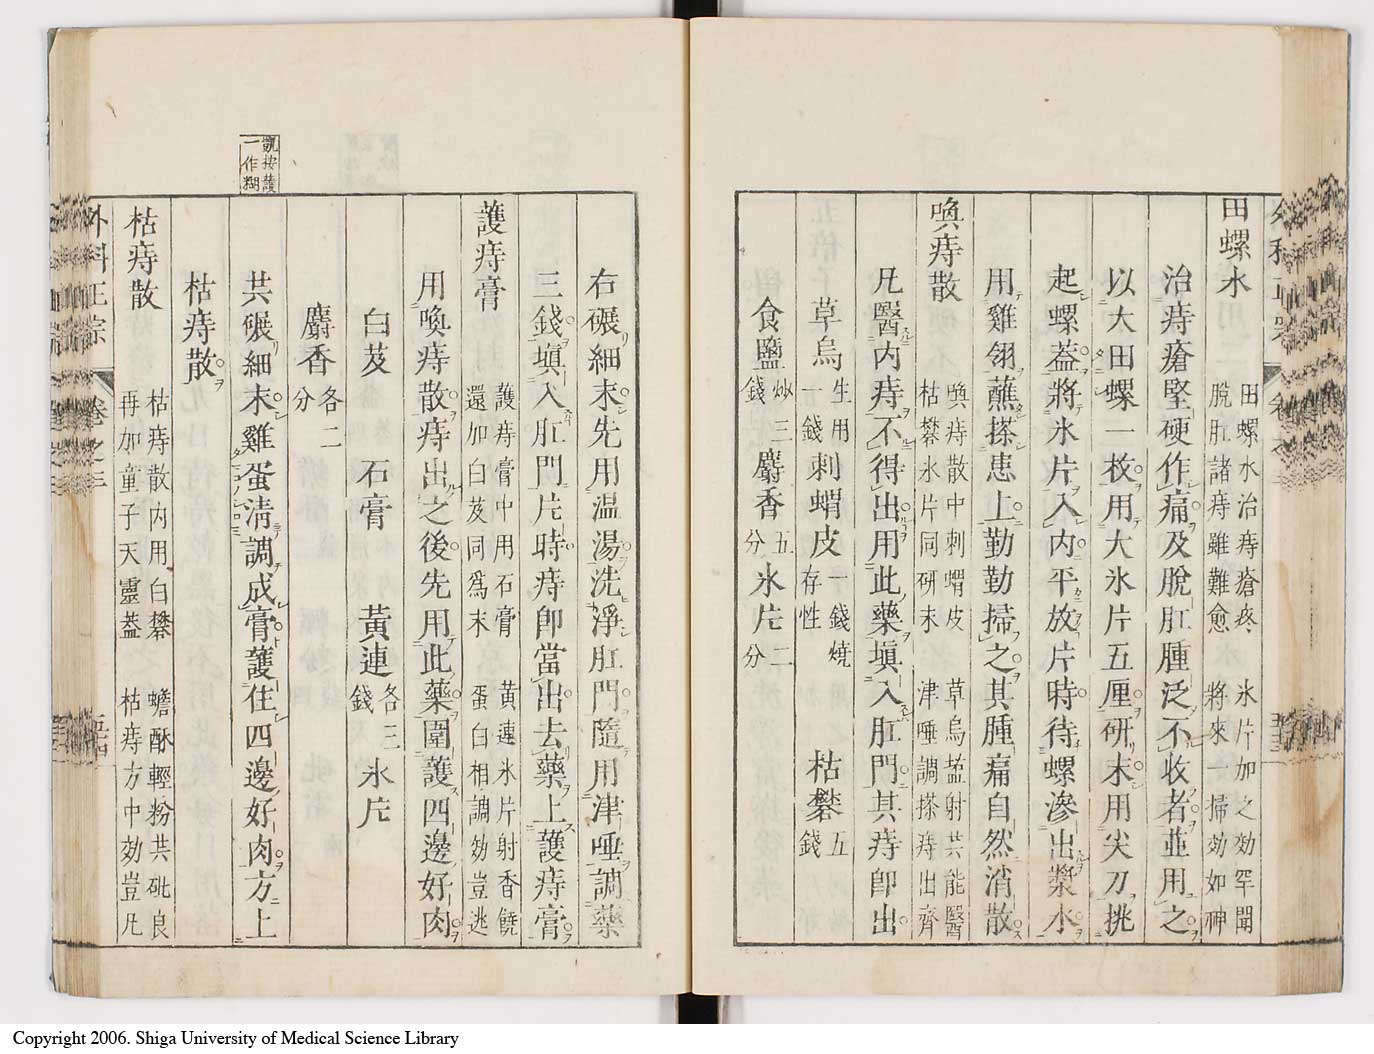 田螺水
田螺水治痔瘡疼 氷片加之効罕聞
脫肛諸痔雖難愈 將來掃効如神
治痔瘡堅硬作痛及脫肛腫泛不收者並用之
以大田螺一枚用大氷片五厘研末用尖刀挑
起螺蓋將氷片入內平放片時待螺滲出漿水
用雞翎蘸搽患上勤勤掃之其腫痛自然消散
喚痔散
喚痔散中刺蝟皮 草烏塩射共能醫
枯礬氷片同研末 津唾調搽痔出齊
凡醫內痔不得出用此藥塡入肛門其痔卽出
草烏 生用一錢 刺蝟皮 一錢燒存性 枯礬 五錢
食鹽 炒三錢 麝香 五分 氷片 二分
右碾細末先用温湯洗淨肛門隨用津唾調藥
三錢塡入肛門片時痔卽當出去藥上護痔膏
護痔膏
護痔膏中用石膏 黃連氷片射香饒
還加白芨同爲末 蛋白相調効豈逃
用喚痔散痔出之後先用此藥圍護四邊好肉
白芨 石膏 黃連 各三錢 氷片
麝香 各二分
凱按護
一作糊
共碾細末雞蛋淸調成膏護住四邊好肉方上
枯痔散
枯痔散
枯痔散內用白礬 蟾酥輕粉共砒良
再加童子天靈蓋 枯痔方中効豈凡
外科正宗 卷之三 五十四